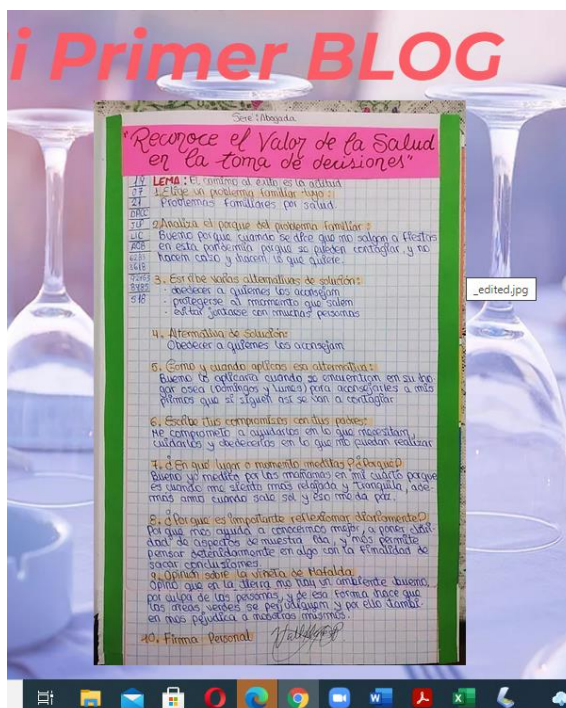 i Primer BLOG
Seré: Abogada
"Reconoce el Valor de la Salud
en la toma de decisiones"
LEMA: El camino al exito es la actitud
1. Elige un problema familiar tuyo:
Problemas familiares por salud.
2. Analiza el porque del problema familiar:
Bueno porque cuando se dice que no salgan a fiestas
en esta pandemia porque se pueden contagiar, y no
hacen caso y hacen lo que quiere.
3. Escribe varias alternativas de solución:
- obedecer a quienes los aconsejan
- protegerse al momento que salen
- evitar juntarse con muchas personas
4. Alternativa de Solución:
Obedecer a quienes los aconsejan
5. Como y cuando aplicas esa alternativa:
Bueno lo aplicaria cuando se encuentran en su ho-
gar osea (Domingos y Lunes) para aconsejarles a mis
primos que si siguen así se van a contagiar
6. Escribe tus compromisos con tus padres:
Me comprometo a ayudarlos en lo que necesitan,
cuidarlos y obedecerlos en lo que no puedan realizar
7. ¿En que lugar o momento meditas? ¿Porque?
Bueno yo medito por las mañanas en mi cuarto porque
es cuando me siento mas relajada y tranquila, ade-
mas amo cuando sale sol y eso me da paz.
8. ¿Por que es importante reflexionar diariamente?
Por que nos ayuda a conocernos mejor, a poner
de aspectos de nuestra vida, y nos permite
pensar detenidamente en algo con la finalidad de
sacar conclusiones.
9. Opinión sobre la viñeta de Mafalda
Opino que en la tierra no hay un ambiente bueno,
por culpa de las personas, y de esa forma hace que
las areas verdes se perjudiquen y por ello tambi-
en nos perjudica a nosotros mismos.
10. Firma Personal
_edited.jpg